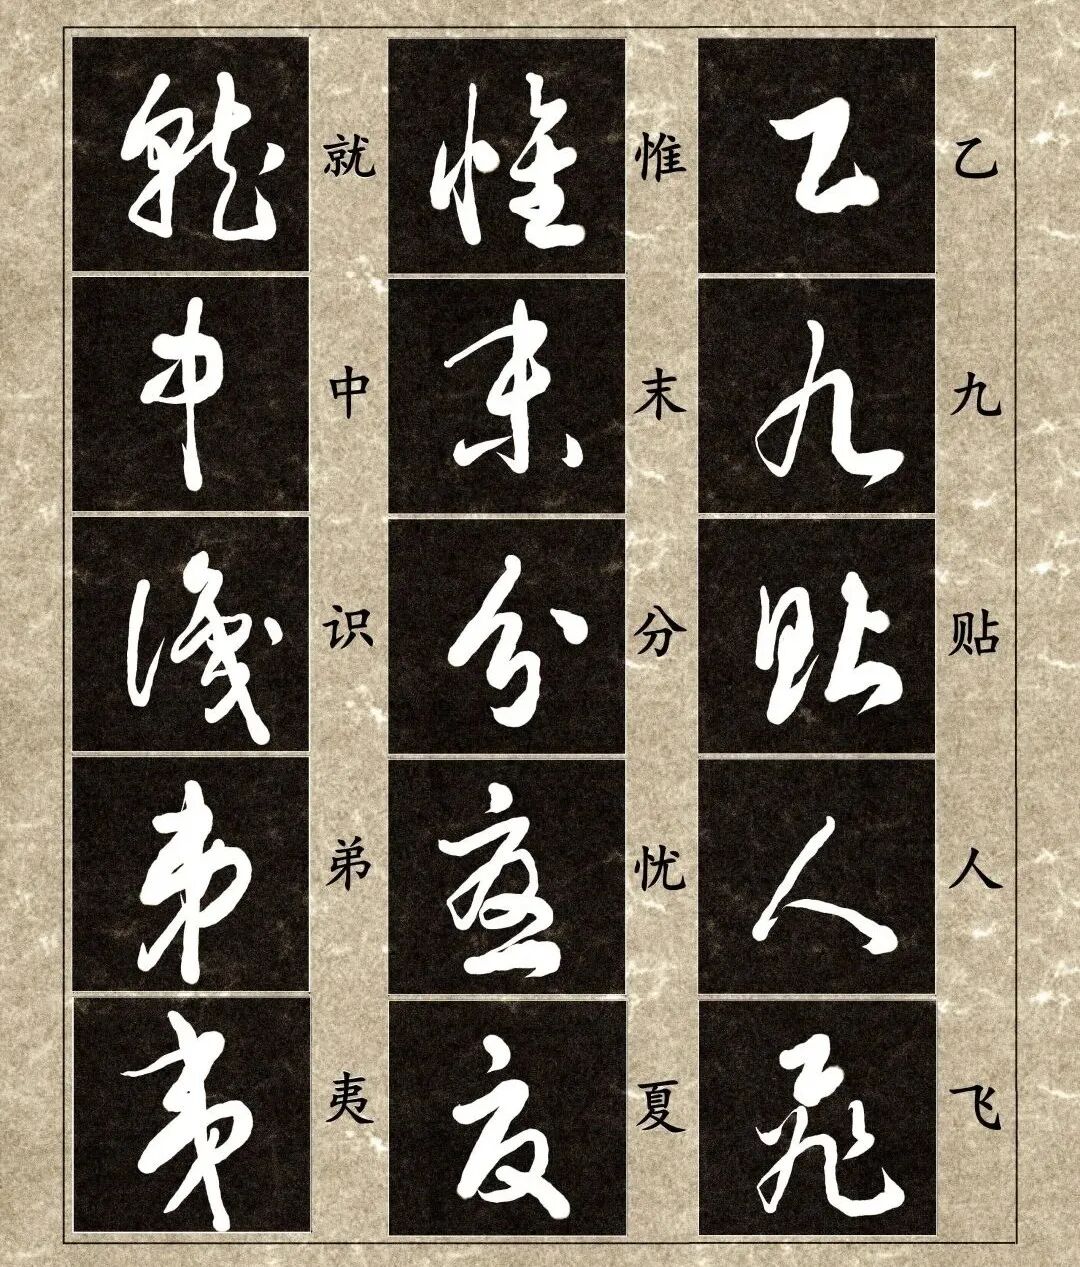 乙九贴人飞
惟末分忧夏
就中识弟夷